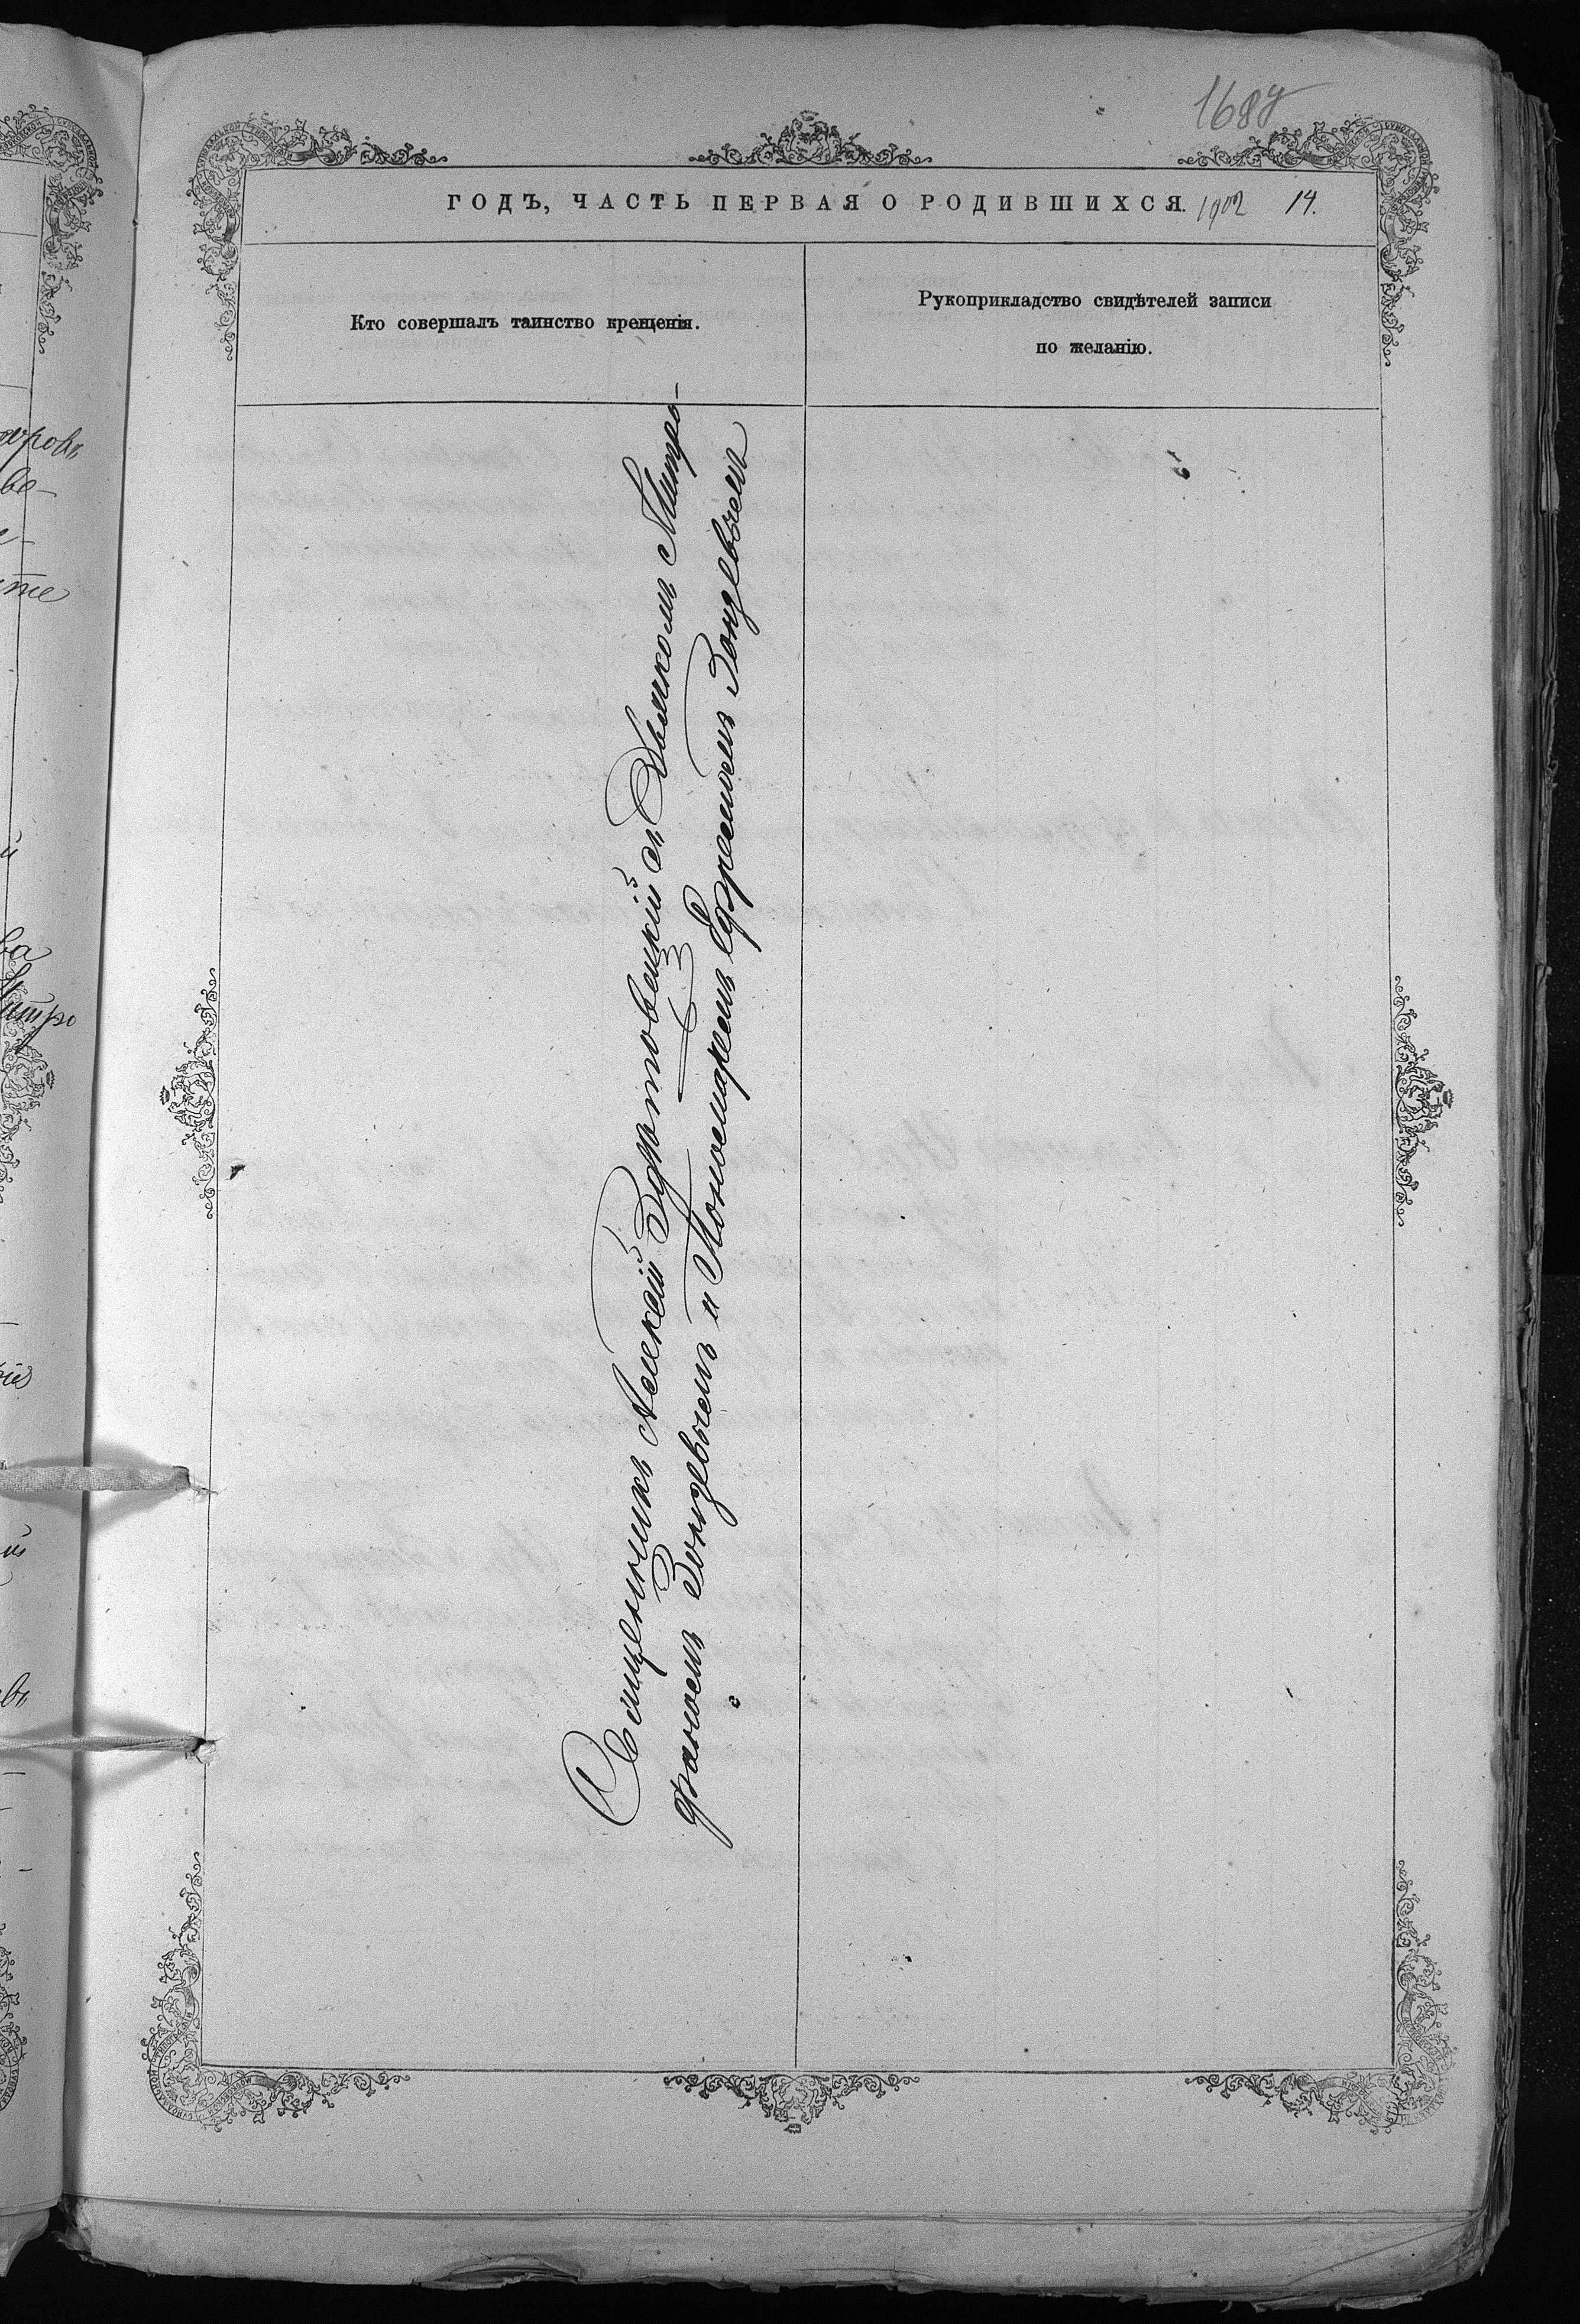 168
ГОДЪ, ЧАСТЬ ПЕРВАЯ О РОДИВШИХСЯ. 1902 14.
Кто совершалъ таинство крещенія.
Рукоприкладство свидѣтелей записи
по желанію.
Священникъ Алексій съ Дьячкомъ Митро-
фаномъ Зонцевымъ и Пономаремъ Ефремомъ Зонцевымъ